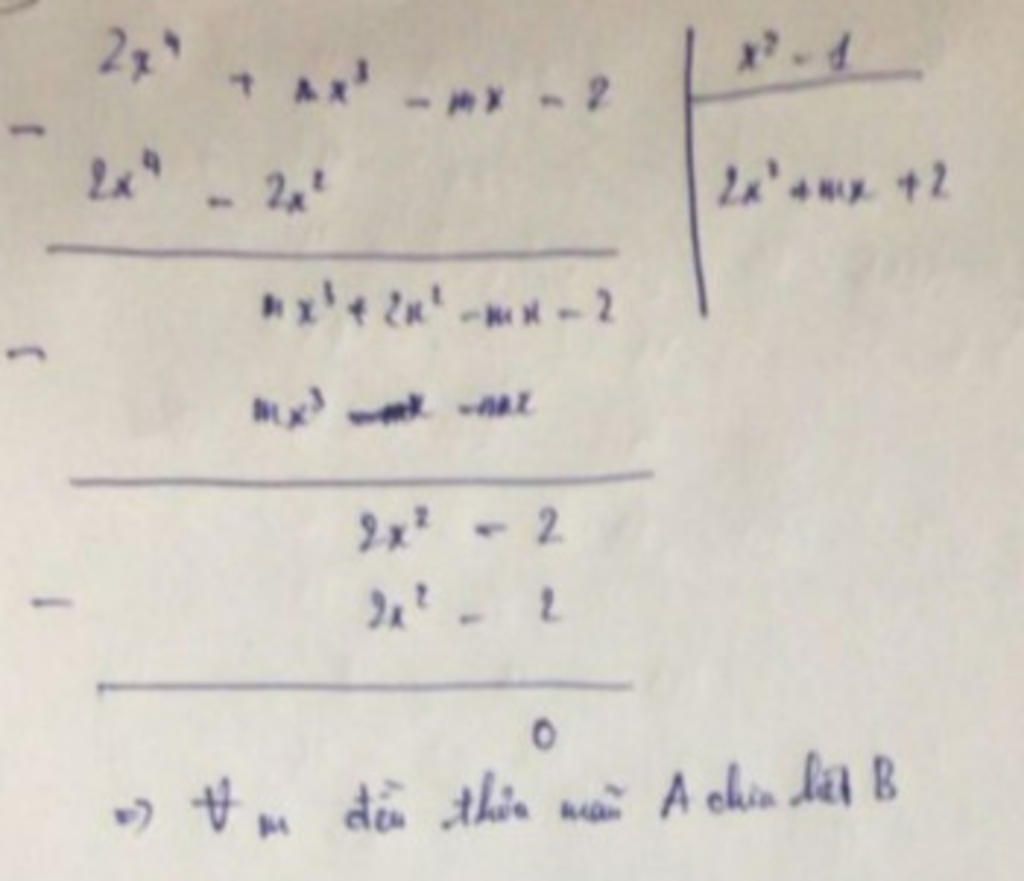 2x⁴ + mx³ - mx - 2 | x² - 1
- 2x⁴ - 2x² | 2x² + mx + 2
mx³ + 2x² - mx - 2
- mx³ - mx
2x² - 2
- 2x² - 2
0
=> ∀m đều thỏa mãn A chia hết B